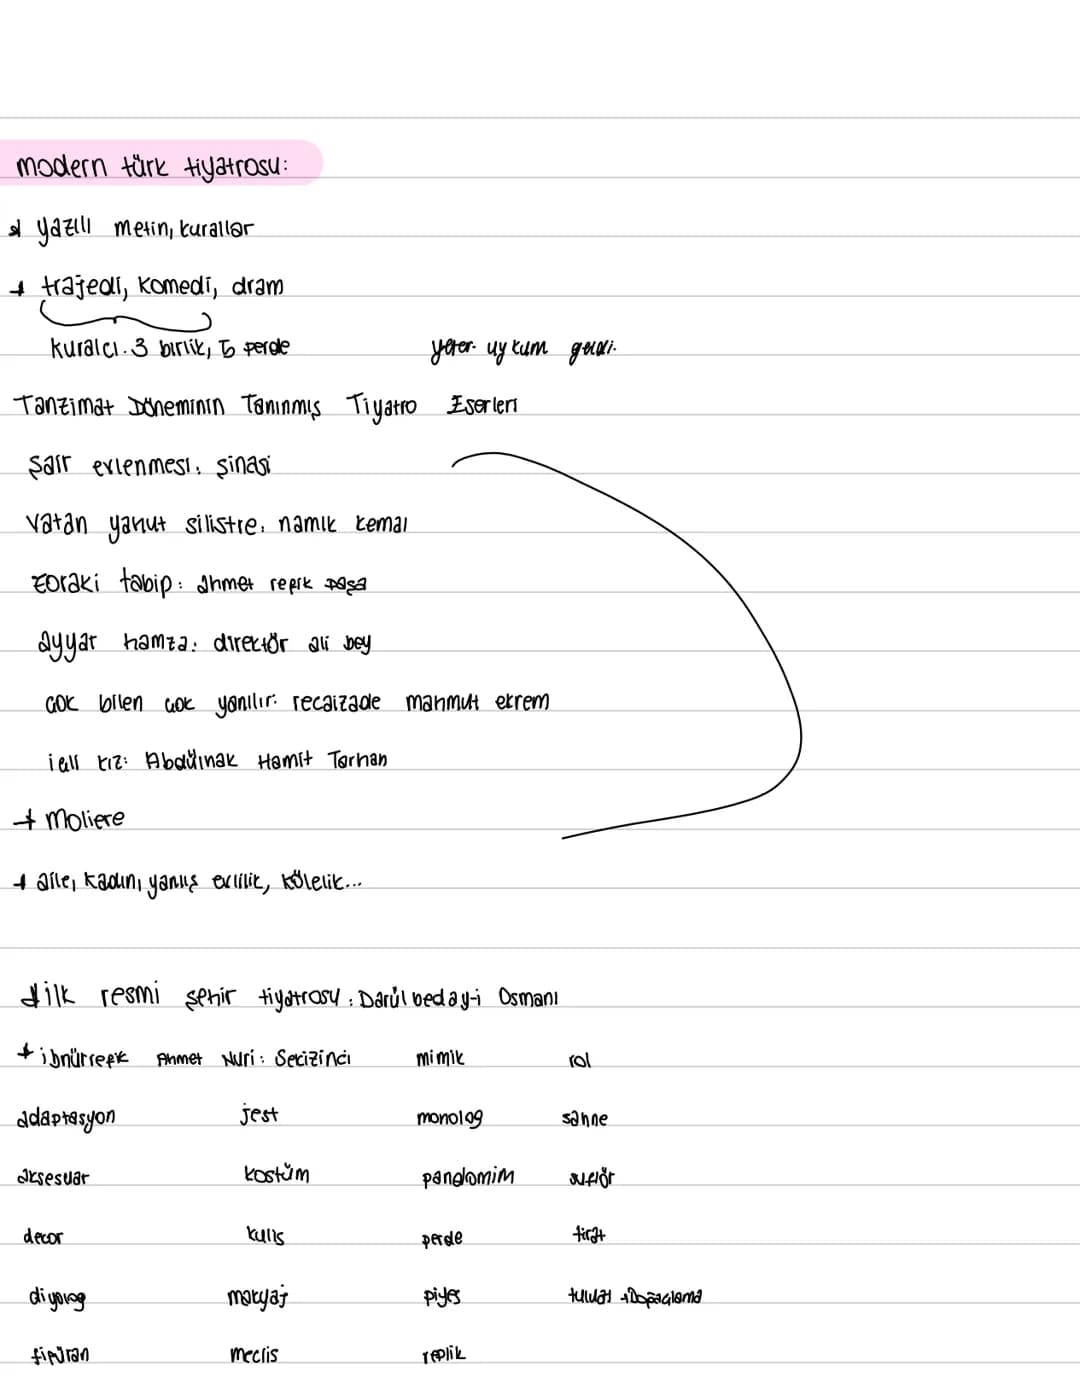 modern türk tiyatrosu:
* yazılı metin, kurallar
+ trajedi, komedi, dram
kuralcı. 3 birlik, 5 perde
yeter. uykum geldi.
Tanzimat Döneminin Tanınmış Tiyatro Eserleri
şair evlenmesi: şinasi
vatan yahut silistre: namık kemal
zoraki tabip: ahmet refik paşa
ayyar hamza: direktör ali bey
çok bilen çok yanılır: recaizade mahmut ekrem
içli kız: Abdülhak Hamit Tarhan
+ moliere
+ aile, kadın, yanlış evlilik, kölelik...
+ ilk resmi şehir tiyatrosu: Darülbedayi-i Osmani
+ ibnürrefik Ahmet Nuri: Sekizinci
mimik rol
adaptasyon jest monolog sahne
aksesuar kostüm pandomim suflör
decor kulis perde tirat
diyolog makyaj piyes tuluat
figüran meclis replik